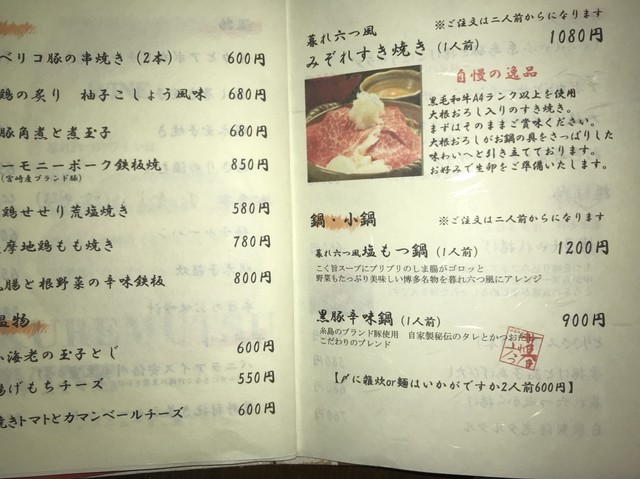 ベリコ豚の串焼き（2本） 600円
鶏の炙り 柚子こしょう風味 680円
豚角煮と煮玉子 680円
ーモニーポーク鉄板焼 850円
（宮崎産ブランド豚）
鶏せせり荒塩焼き 580円
摩地鶏もも焼き 780円
腸と根野菜の辛味鉄板 800円
温物
小海老の玉子とじ 600円
揚げもちチーズ 550円
焼きトマトとカマンベールチーズ 600円
※ご注文は二人前からになります
暮れ六つ風
みぞれすき焼き（1人前） 1080円
自慢の逸品
黒毛和牛A4ランク以上を使用
大根おろし入りのすき焼き。
まずはそのままご賞味ください。
大根おろしがお鍋の具をさっぱりした
味わいへと引き立てております。
お好みで生卵をご準備いたします。
鍋・小鍋 ※ご注文は二人前からになります
暮れ六つ風塩もつ鍋（1人前） 1200円
こく旨スープにプリプリのしま腸がゴロッと
野菜もたっぷり美味しい博多名物を暮れ六つ風にアレンジ
黒豚辛味鍋（1人前） 900円
糸島のブランド豚使用 自家製秘伝のタレとかつおだし
こだわりのブレンド
【〆に雑炊or麺はいかがですか2人前600円】